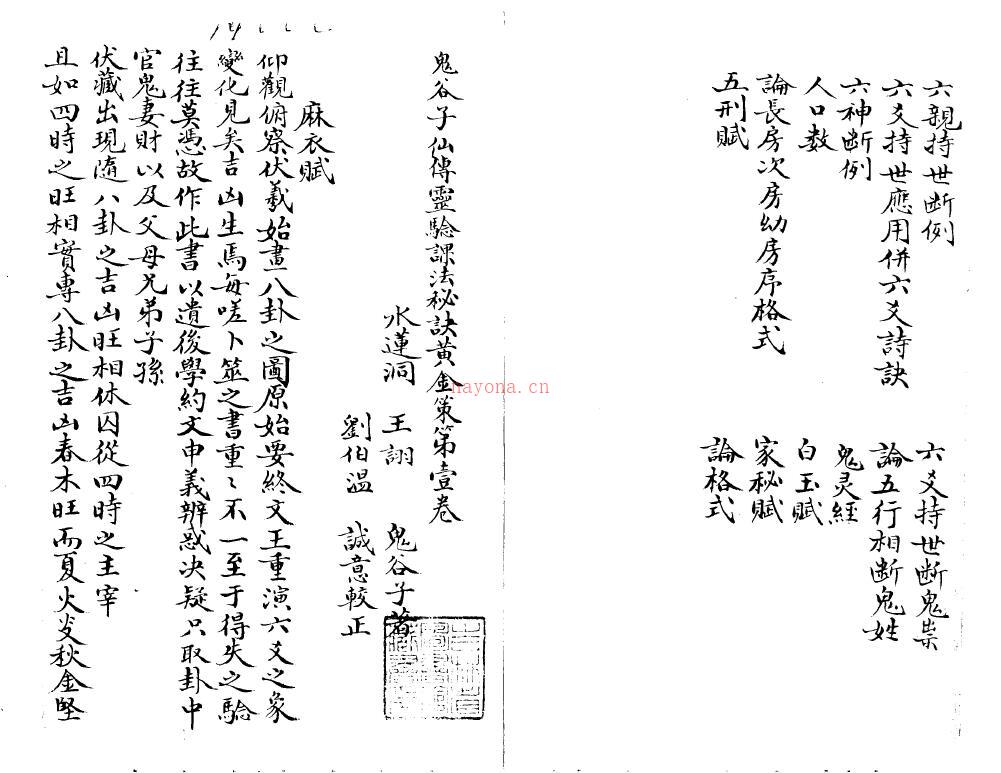 六親持世断例
六爻持世断鬼祟
六爻持世應用併六爻詩訣
論五行相断鬼姓
六神断例
鬼灵經
人口数
白玉賦
論長房次房幼房序格式
家秘賦
五刑賦
論格式
鬼谷子仙傳靈驗課法秘訣黄金策第壹卷
水蓮洞 王詡 鬼谷子著
劉伯温 誠意較正
麻衣賦
仰觀俯察伏羲始畫八卦之圖原始要終文王重演六爻之象
變化見矣吉凶生焉每嗟卜筮之書重〻不一至于得失之驗
往往莫憑故作此書以遺後學約文申義辨惑决疑只取卦中
官鬼妻財以及父母兄弟子孫
伏藏出現隨八卦之吉凶旺相休囚從四時之主宰
且如四時之旺相實專八卦之吉凶春木旺而夏火炎秋金堅
nayona.cn